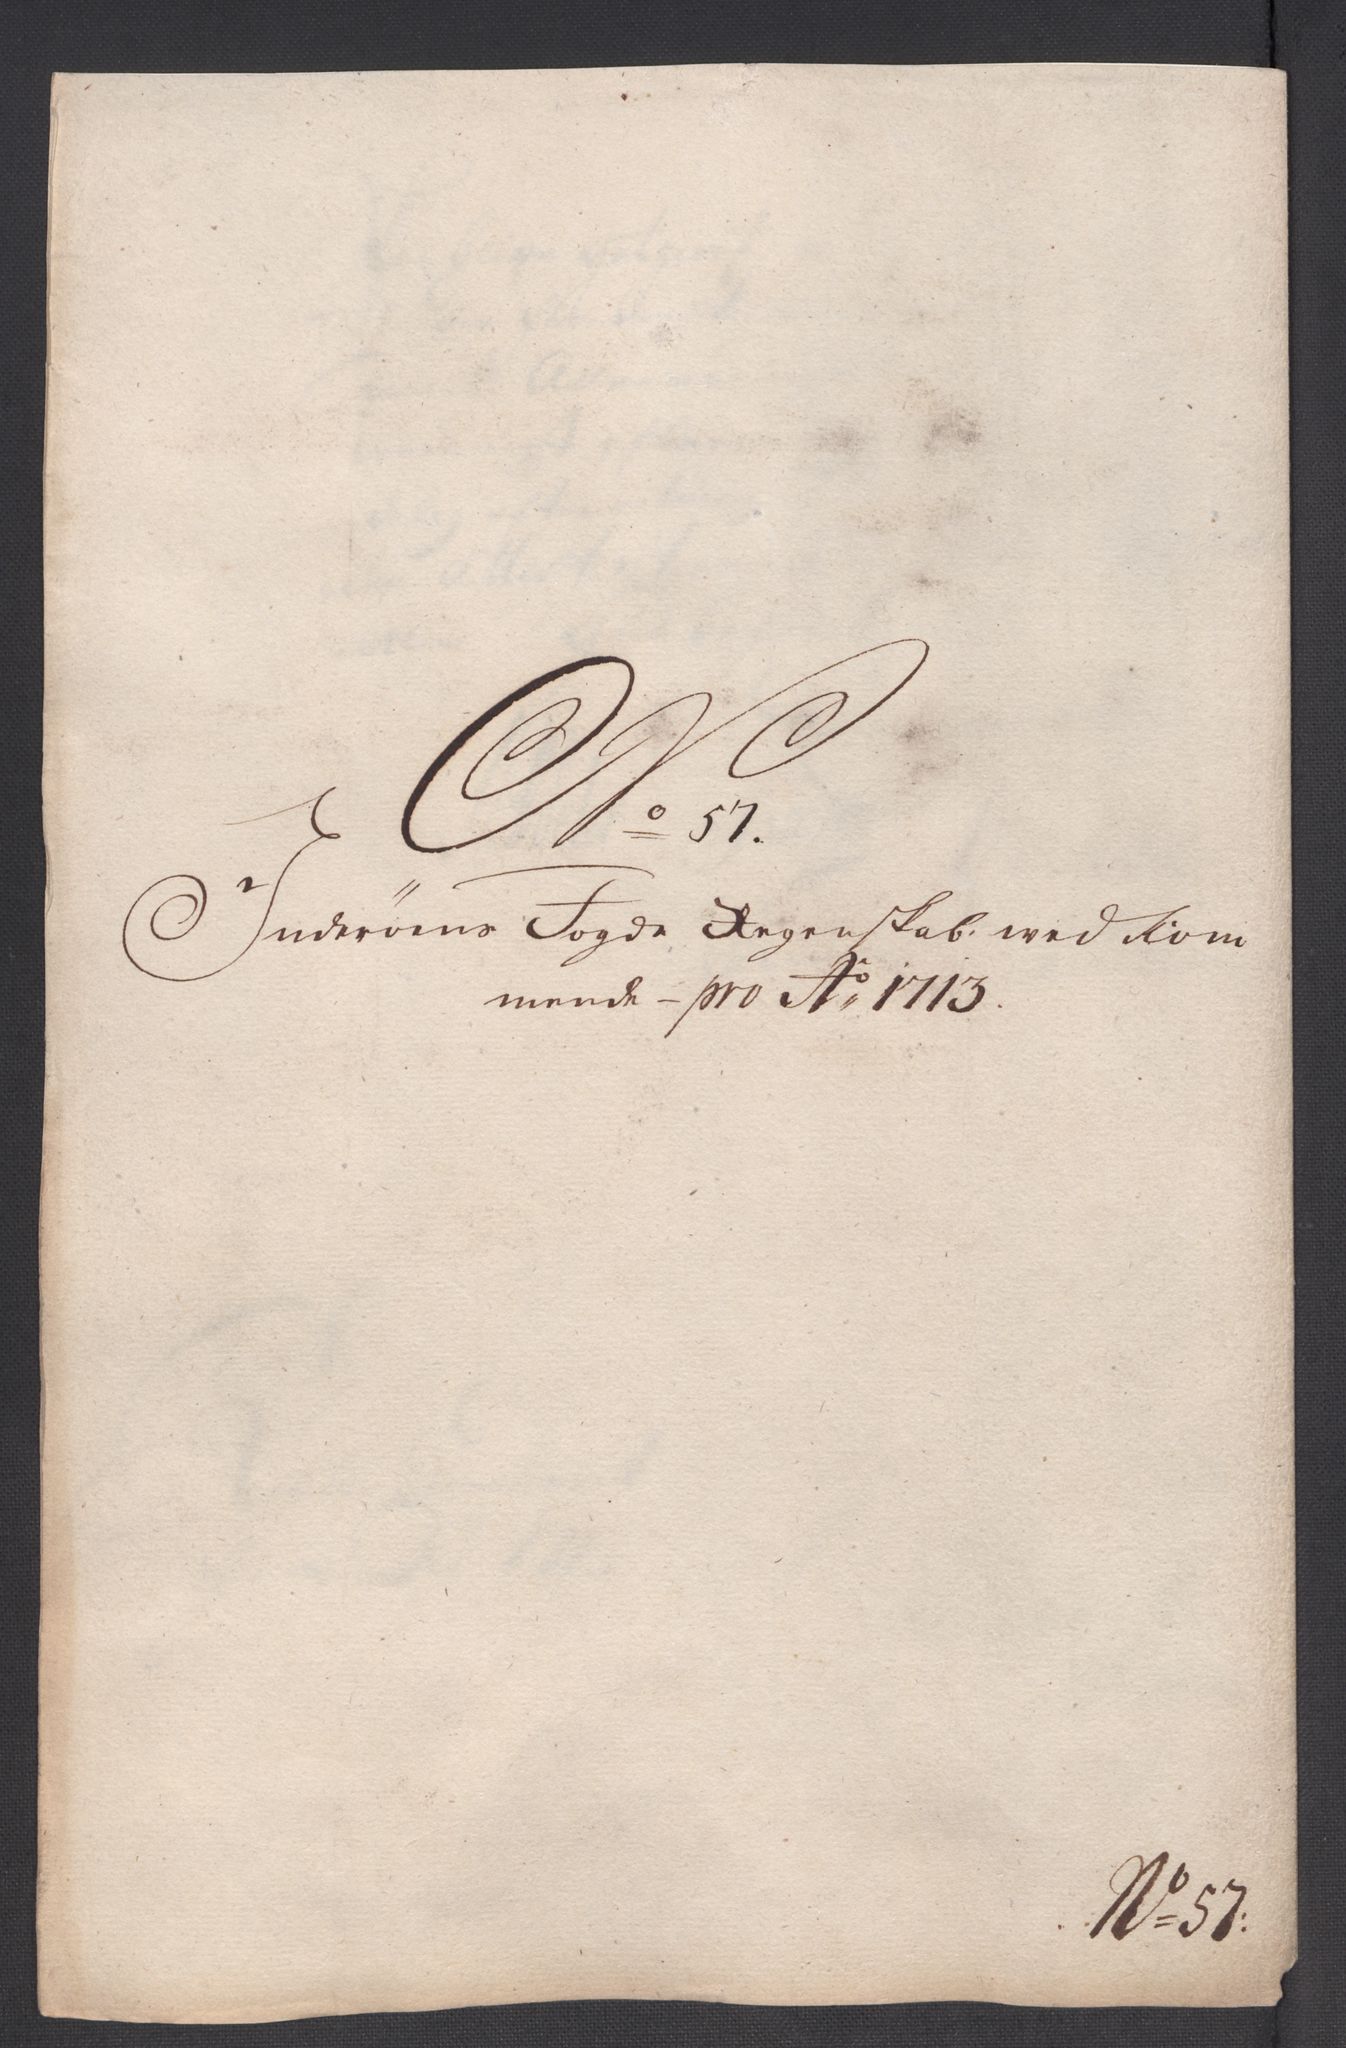 No 57.
Inderöens Fogde Regenskab. wed Kom
mende - pro Ao 1713.
No 57.